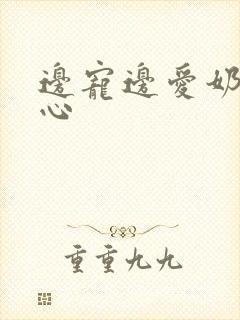 邊寵邊愛奶
心
重重九九